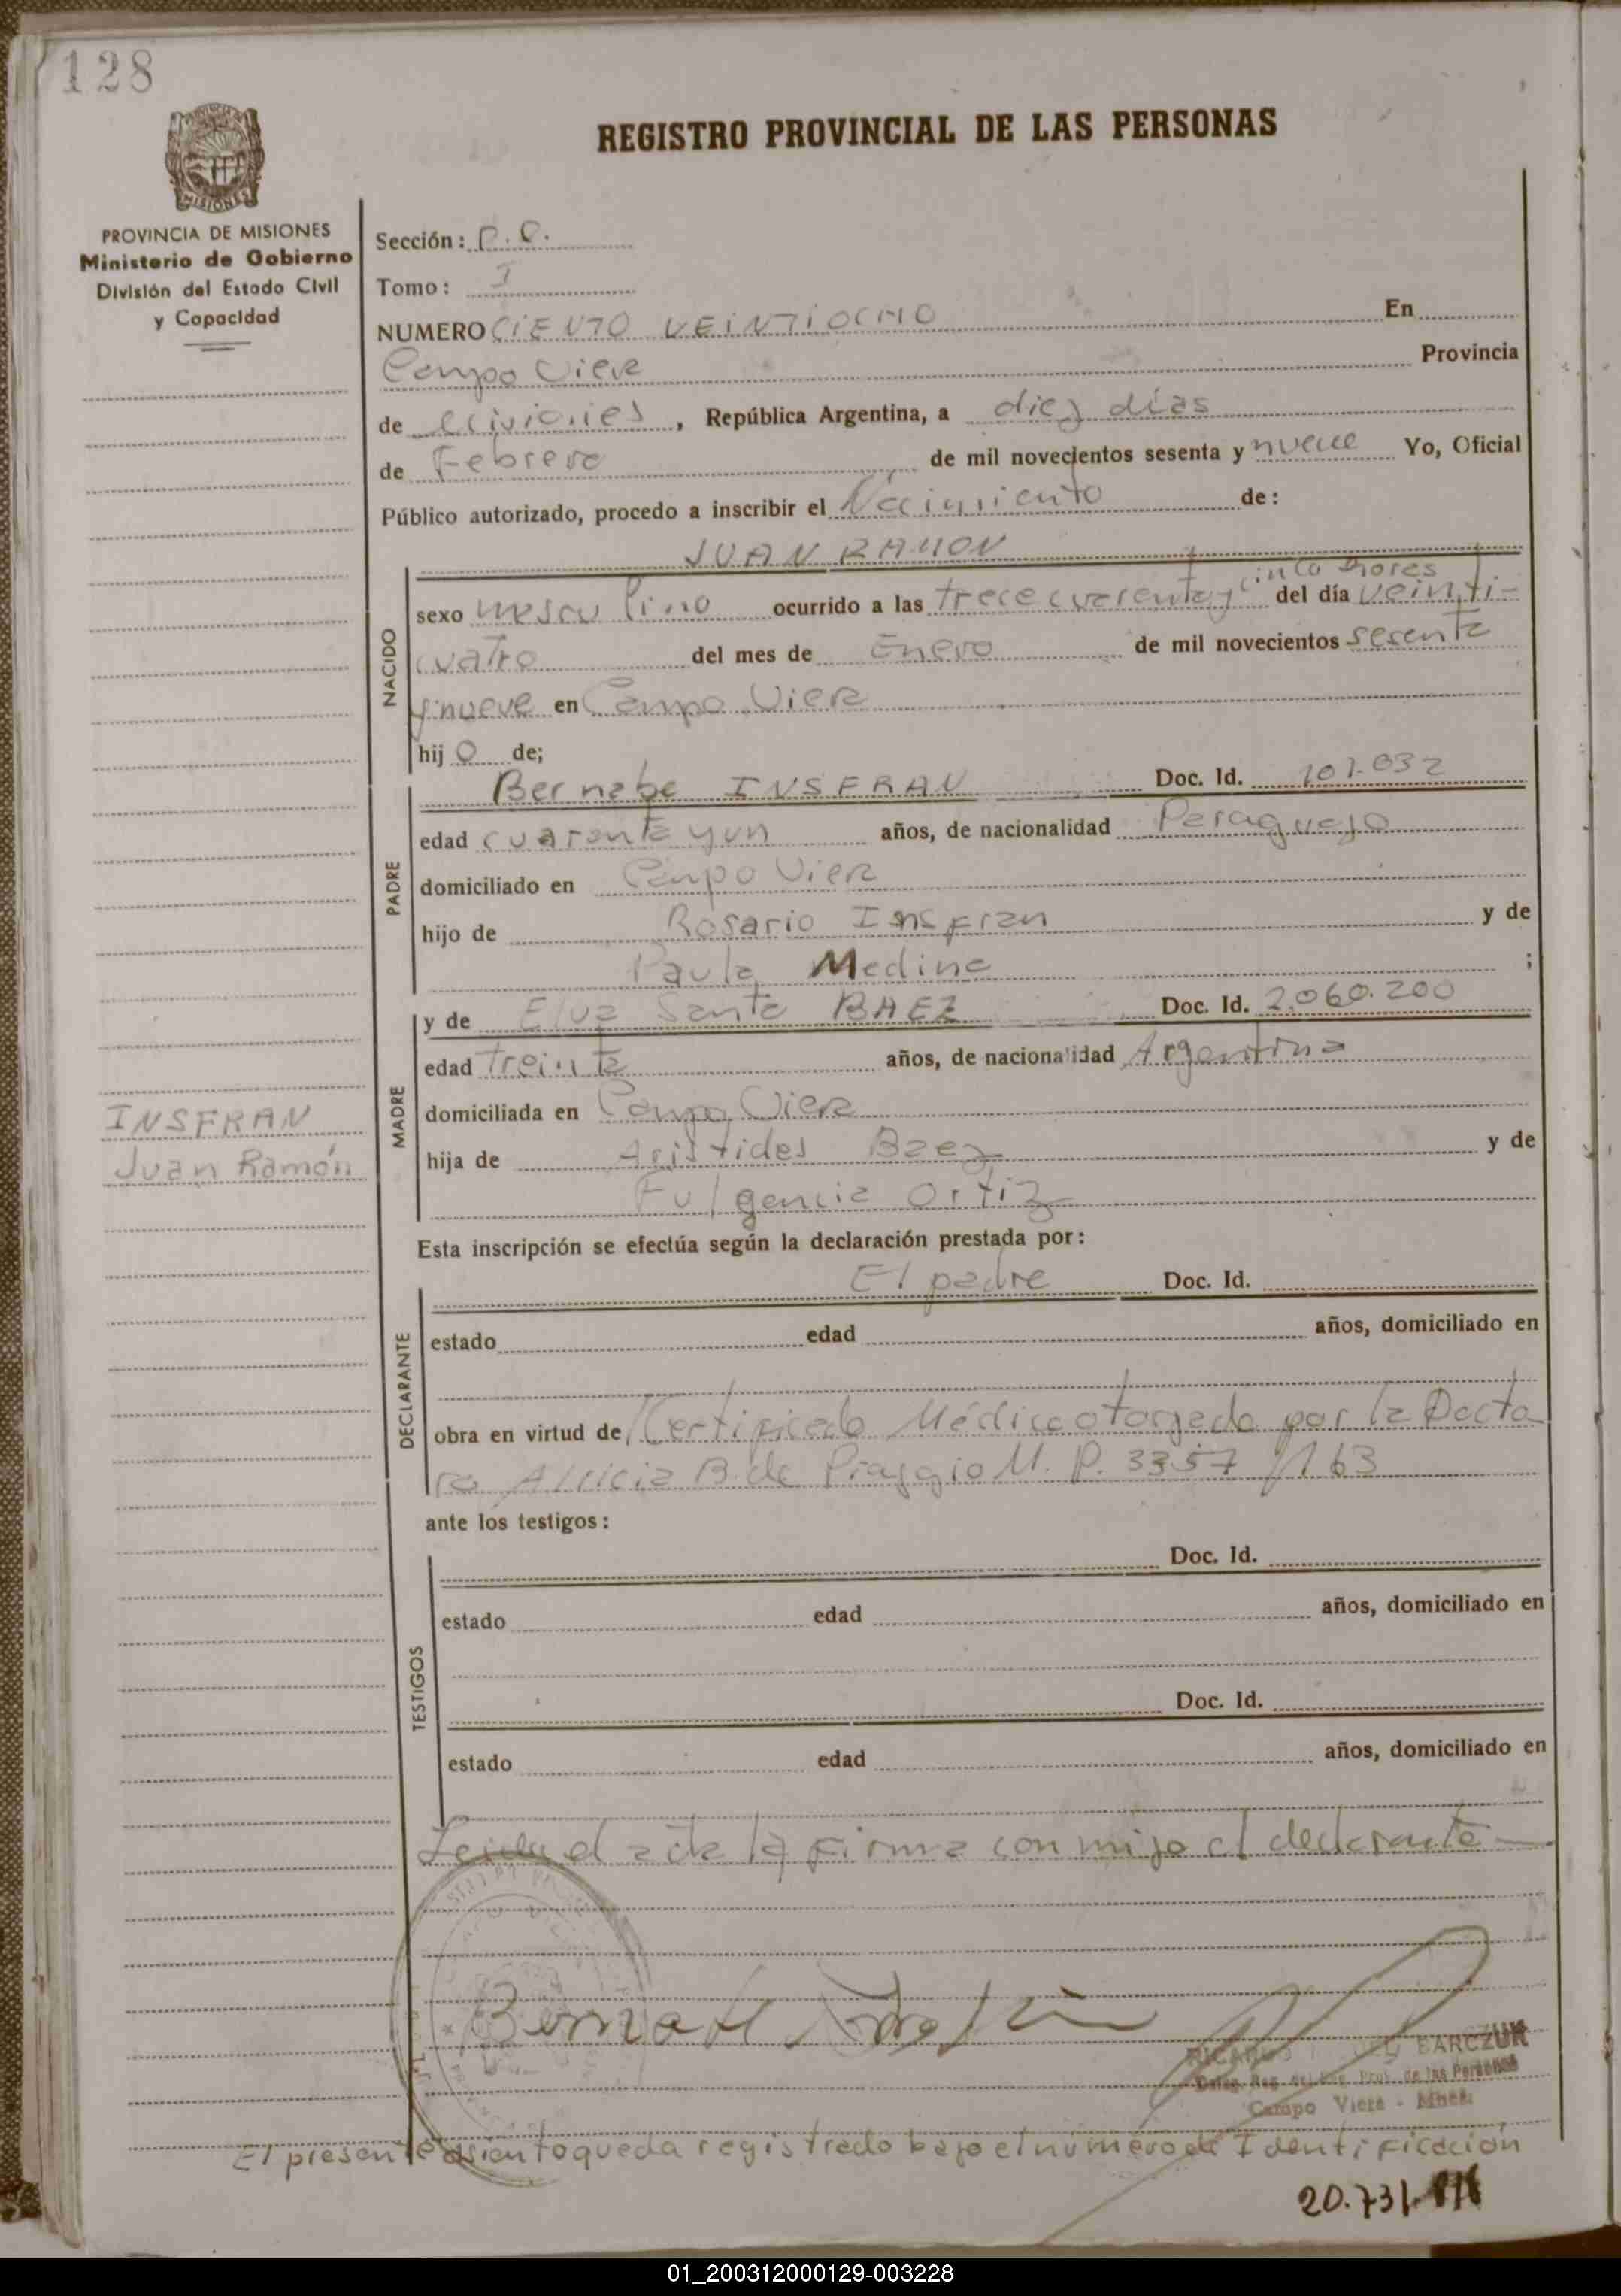 128
REGISTRO PROVINCIAL DE LAS PERSONAS
PROVINCIA DE MISIONES
MISIONES
Ministerio de Gobierno
División del Estado Civil
y Capacidad
Sección:
Tomo: I
NUMERO CIENTO VEINTIOCHO En
Campo Viera Provincia
de Misiones, República Argentina, a diez días
de Febrero de mil novecientos sesenta y nueve Yo, Oficial
Público autorizado, procedo a inscribir el Nacimiento de:
JUAN RAMON
NACIDO
sexo masculino ocurrido a las trece cuarenta y cinco horas del día veinti-
cuatro del mes de Enero de mil novecientos sesenta
y nueve en Campo Viera
hij o de;
PADRE
Bernabe INSFRAN Doc. Id. 101.032
edad cuarenta y un años, de nacionalidad Paraguayo
domiciliado en Campo Viera
hijo de Rosario Insfran y de
Paula Medina ;
MADRE
y de Elva Santa BAEZ Doc. Id. 2.060.200
edad treinta años, de nacionalidad Argentina
domiciliada en Campo Viera
hija de Aristides Baez y de
Fulgencia Ortiz
INSFRAN
Juan Ramón
Esta inscripción se efectúa según la declaración prestada por:
DECLARANTE
El padre Doc. Id.
estado edad años, domiciliado en
obra en virtud de Certificado Médico otorgado por la Docto
ra Alicia B. de Piaggio M. P. 3357 / 163
ante los testigos:
TESTIGOS
Doc. Id.
estado edad años, domiciliado en
Doc. Id.
estado edad años, domiciliado en
Leida el acta la firma conmigo el declarante
RICARDO BARCZUK
Deleg. Reg. Prov. de las Personas
Campo Viera - Mnes.
El presente asiento queda registrado bajo el número de Identificación
20.731
01_200312000129-003228